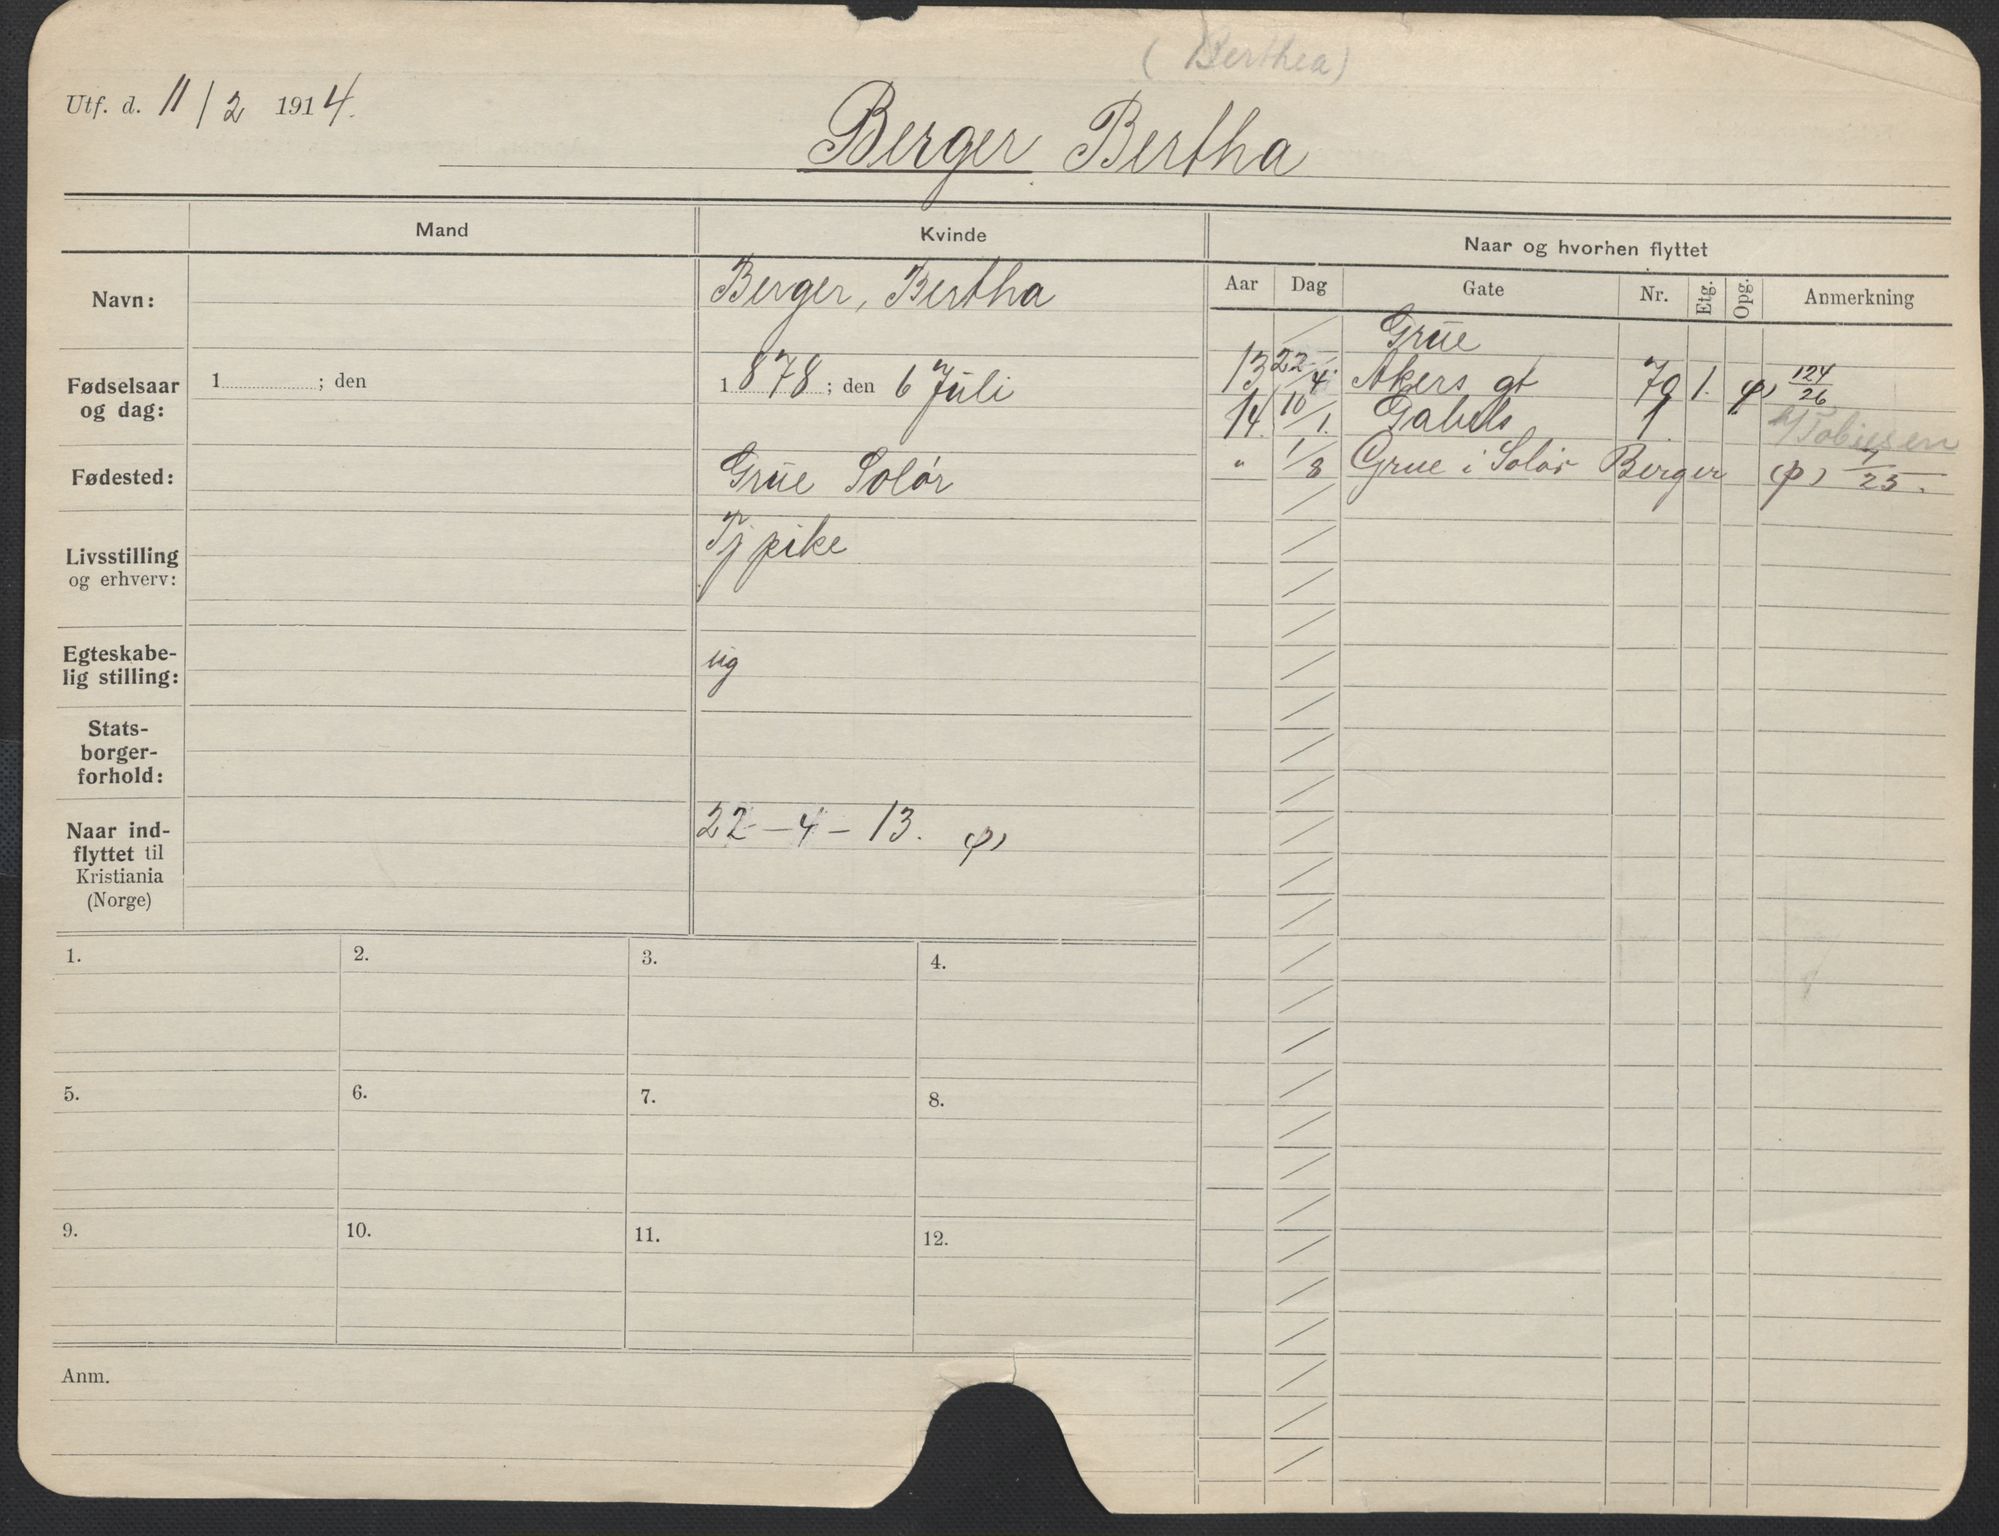 (Berthea)
Utf. d. 11/2 1914.
Berger Bertha
Mand
Kvinde
Naar og hvorhen flyttet
Navn:
Berger, Bertha
Aar Dag Gate Nr. Etg. Opg. Anmerkning
Grue
13 22/4. Akers gt 79 1. 124/26
14. 10/1. Gabels 1.
" 1/8 Grue i Solør Berger (p) 7/25.
Fødselsaar
og dag:
1 ; den
1878; den 6 Juli
Fødested:
Grue Solør
Livsstilling
og erhverv:
Tj pike
Egteskabe-
lig stilling:
ug
Stats-
borger-
forhold:
Naar ind-
flyttet til
Kristiania
(Norge)
22-4-13.
1. 2. 3. 4.
5. 6. 7. 8.
9. 10. 11. 12.
Anm.